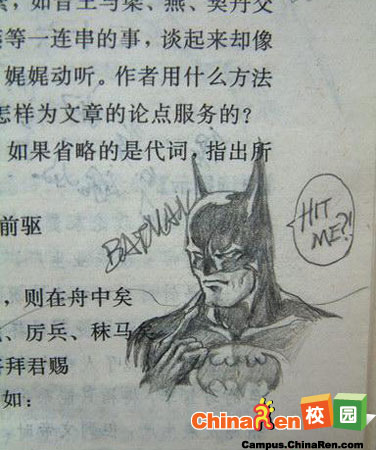 ，如昔王与栾、燕、契丹交
等一连串的事，谈起来却像
娓娓动听。作者用什么方法
怎样为文章的论点服务的？
如果省略的是代词，指出所
前驱
BATMAN
HIT
ME?!
，则在舟中矣
、厉兵、秣马矣
拜君赐
如：
ChinaRen 校园
Campus.ChinaRen.com